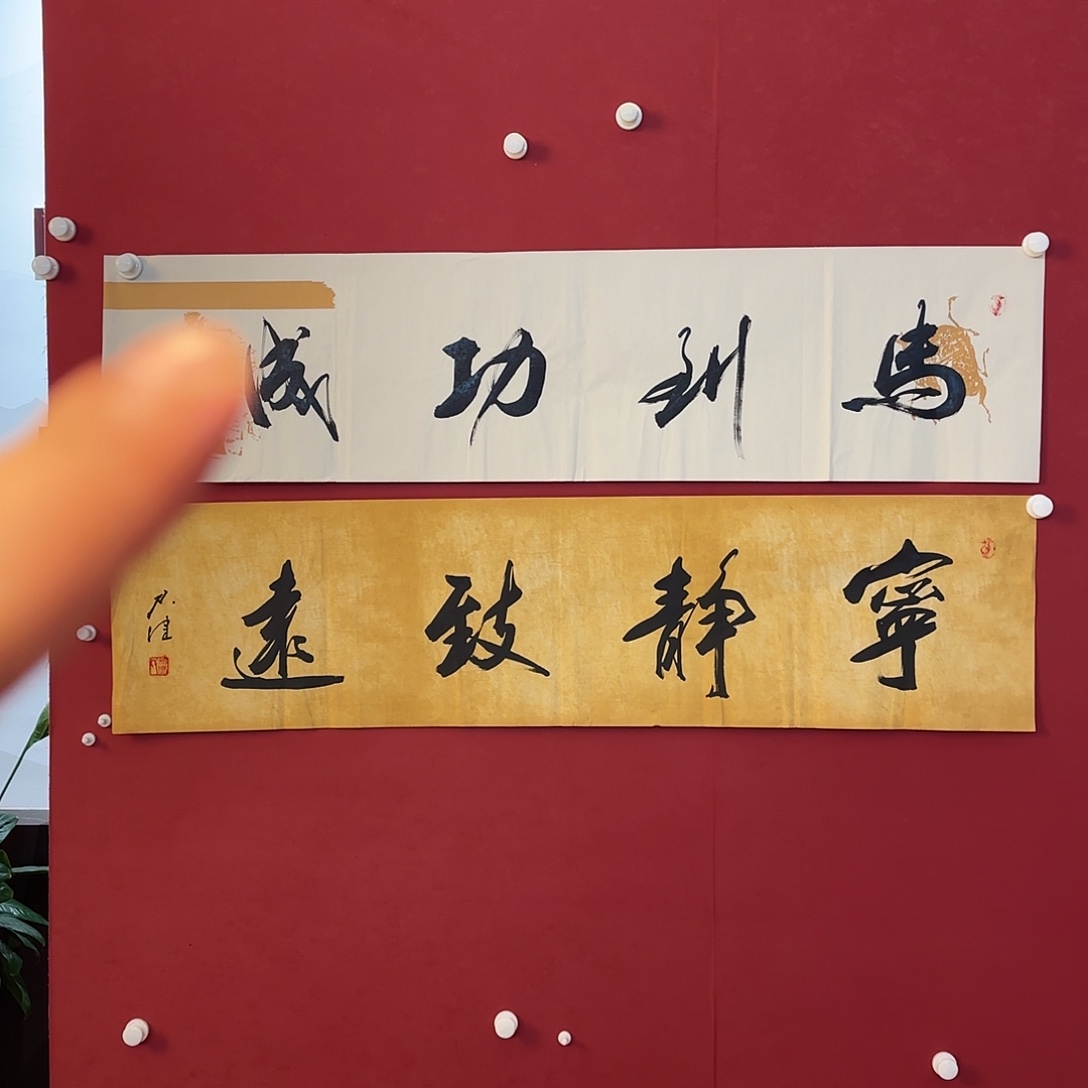 馬到功成
寧静致遠